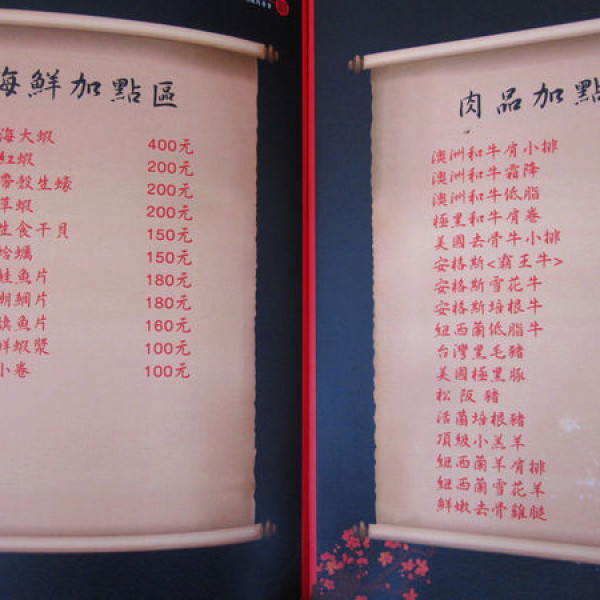 海鮮加點區
海大蝦 400元
紅蝦 200元
帶殼生蠔 200元
草蝦 200元
生食干貝 150元
蛤蠣 150元
鮭魚片 180元
鯛魚片 180元
旗魚片 160元
鮮蝦漿 100元
小卷 100元
肉品加點
澳洲和牛肩小排
澳洲和牛霜降
澳洲和牛低脂
極黑和牛肩卷
美國去骨牛小排
安格斯<霸王牛>
安格斯雪花牛
安格斯培根牛
紐西蘭低脂牛
台灣黑毛豬
美國極黑豚
松阪豬
活菌培根豬
頂級小羔羊
紐西蘭羊肩排
紐西蘭雪花羊
鮮嫩去骨雞腿